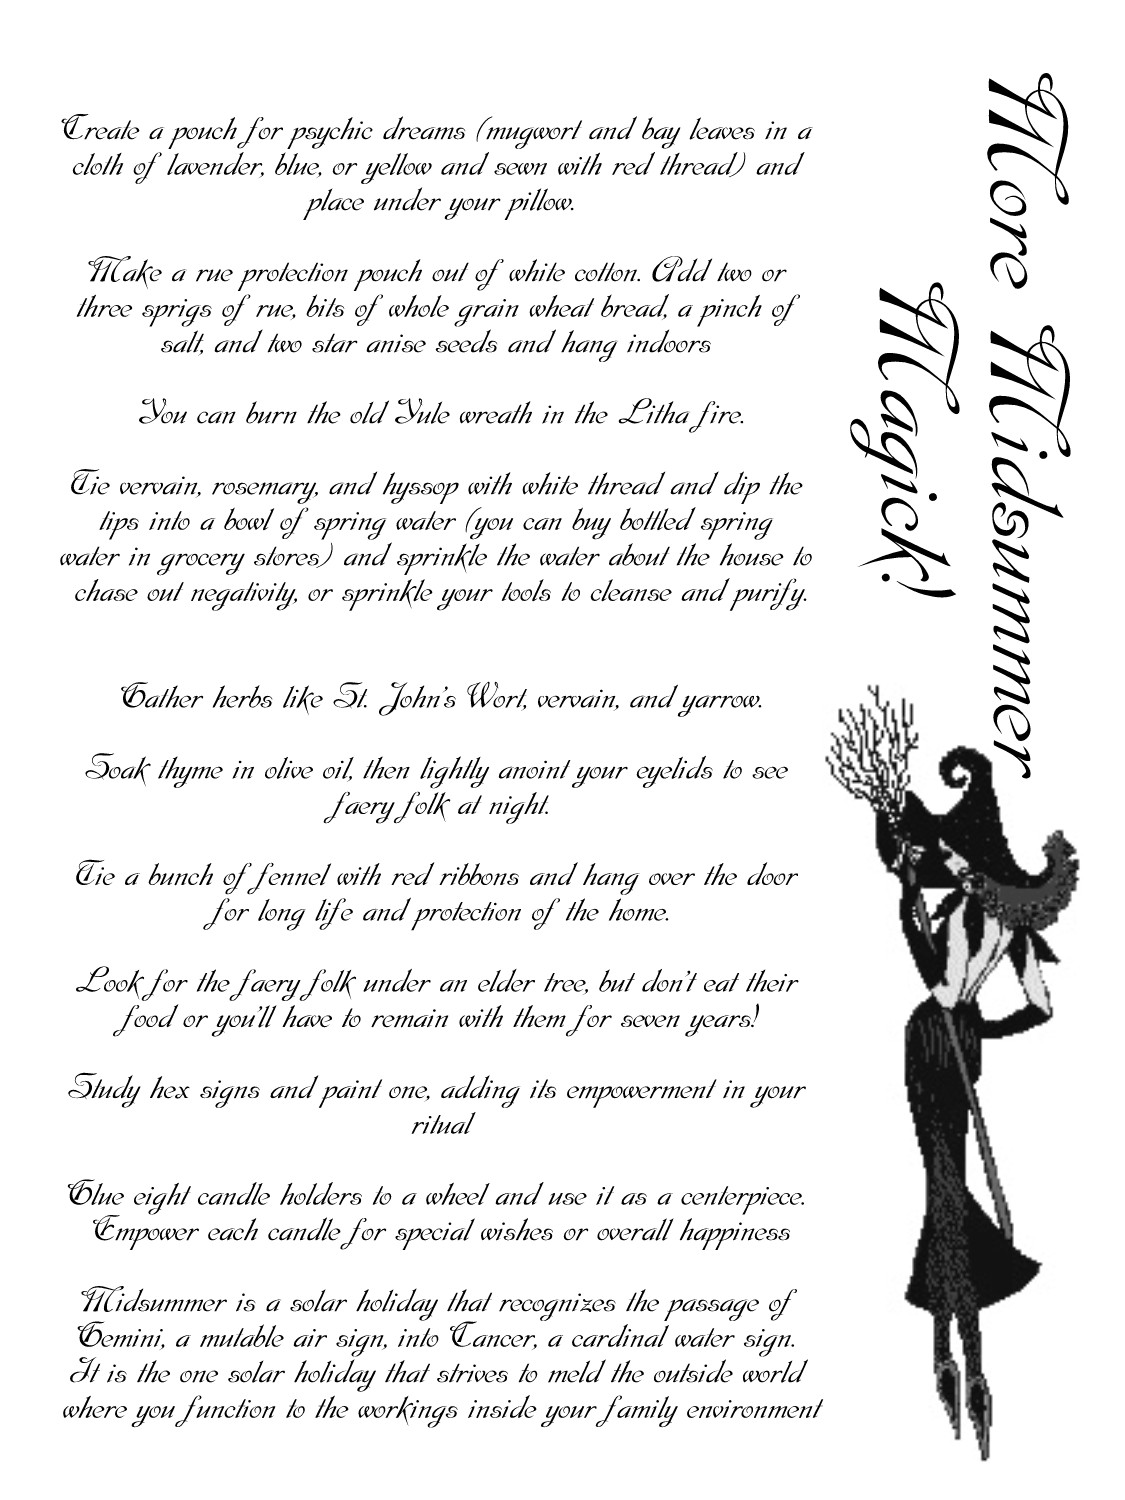 More Midsummer
Magick!
Create a pouch for psychic dreams (mugwort and bay leaves in a
cloth of lavender, blue, or yellow and sewn with red thread) and
place under your pillow.
Make a rue protection pouch out of white cotton. Add two or
three sprigs of rue, bits of whole grain wheat bread, a pinch of
salt, and two star anise seeds and hang indoors
You can burn the old Yule wreath in the Litha fire.
Tie vervain, rosemary, and hyssop with white thread and dip the
tips into a bowl of spring water (you can buy bottled spring
water in grocery stores) and sprinkle the water about the house to
chase out negativity, or sprinkle your tools to cleanse and purify.
Gather herbs like St. John's Wort, vervain, and yarrow.
Soak thyme in olive oil, then lightly anoint your eyelids to see
faery folk at night.
Tie a bunch of fennel with red ribbons and hang over the door
for long life and protection of the home.
Look for the faery folk under an elder tree, but don't eat their
food or you'll have to remain with them for seven years!
Study hex signs and paint one, adding its empowerment in your
ritual
Glue eight candle holders to a wheel and use it as a centerpiece.
Empower each candle for special wishes or overall happiness
Midsummer is a solar holiday that recognizes the passage of
Gemini, a mutable air sign, into Cancer, a cardinal water sign.
It is the one solar holiday that strives to meld the outside world
where you function to the workings inside your family environment